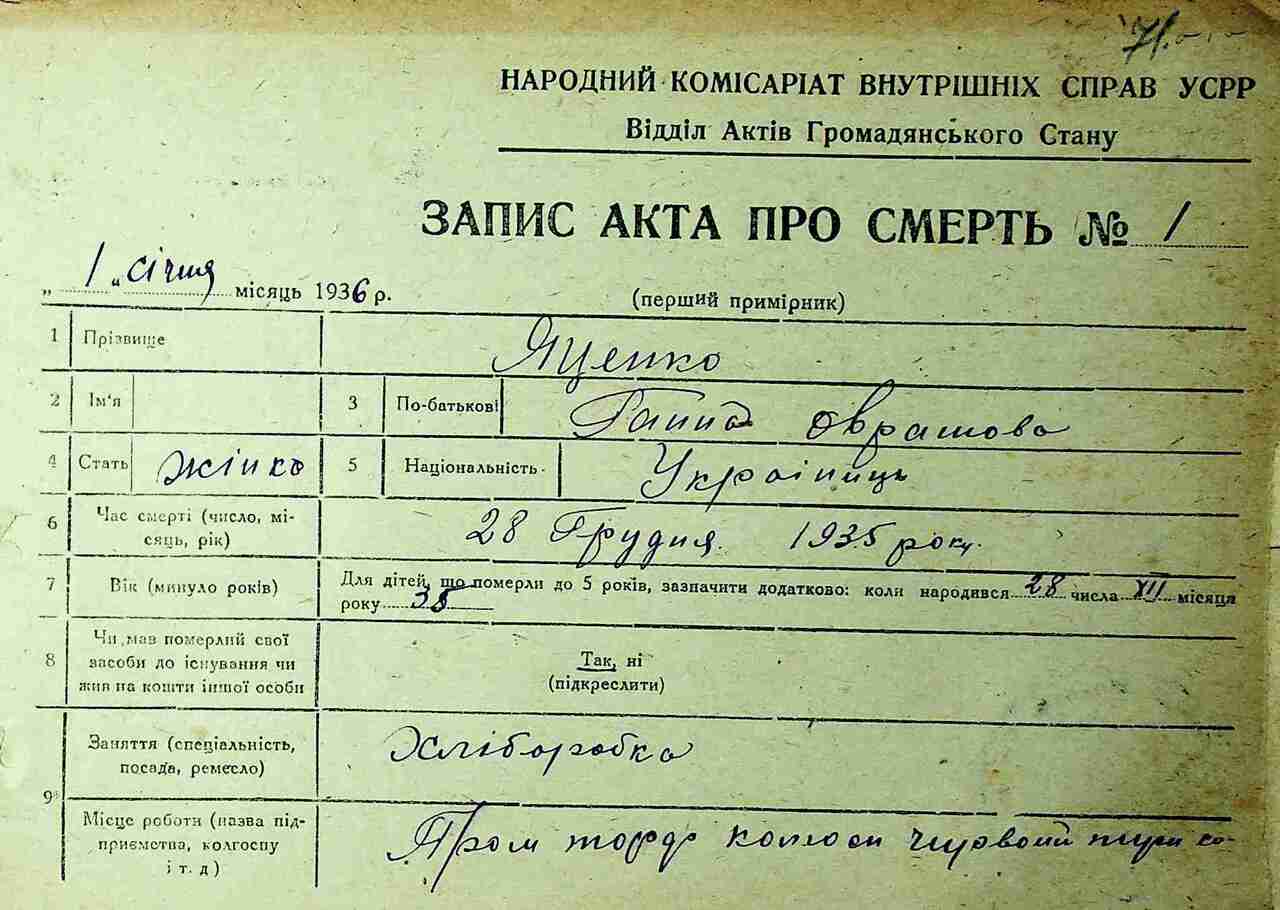 71.
НАРОДНИЙ КОМІСАРІАТ ВНУТРІШНІХ СПРАВ УСРР
Відділ Актів Громадянського Стану
ЗАПИС АКТА ПРО СМЕРТЬ № 1
„ 1 „ січня місяць 1936 р.
(перший примірник)
1 Прізвище Яценко
2 Ім'я 3 По-батькові Ганна Оврамова
4 Стать жінка 5 Національність Українець
6 Час смерті (число, мі-
сяць, рік) 28 Грудня. 1935 року.
7 Вік (минуло років) Для дітей, що померли до 5 років, зазначити додатково: коли народився 28 числа XII місяця
року 35
8 Чи мав померлий свої
засоби до існування чи
жив на кошти іншої особи
Так, ні
(підкреслити)
9 Заняття (спеціальність,
посада, ремесло) Хліборобка
Місце роботи (назва під-
приємства, колгоспу
і т. д)
колоси червоний